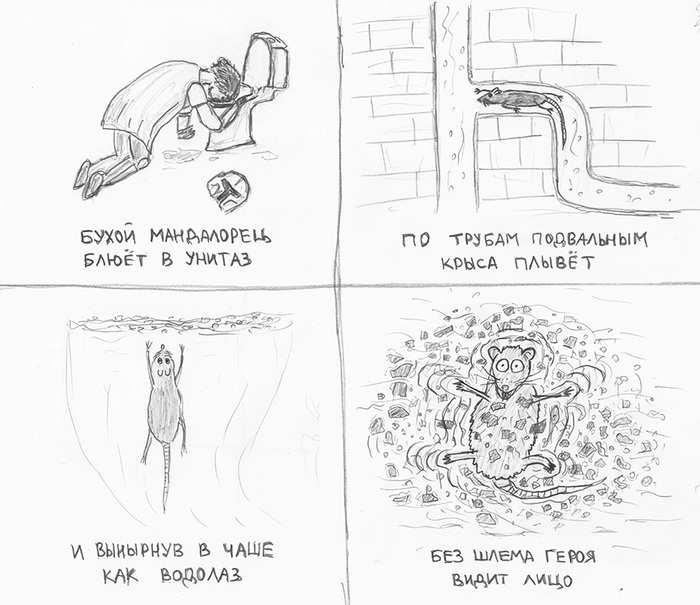 БУХОЙ МАНДАЛОРЕЦЬ
БЛЮЁТ В УНИТАЗ
ПО ТРУБАМ ПОДВАЛЬНЫМ
КРЫСА ПЛЫВЁТ
И ВЫНЫРНУВ В ЧАШЕ
КАК ВОДОЛАЗ
БЕЗ ШЛЕМА ГЕРОЯ
ВИДИТ ЛИЦО